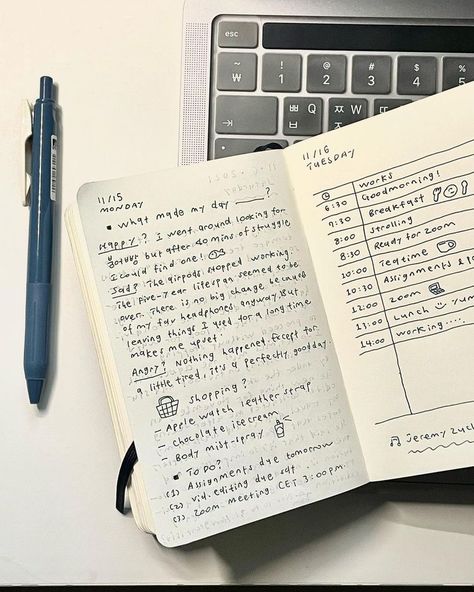 esc
₩ ! @ # $ %
1 2 3 4 5
ㅃ Q ㅉ W
11/15
MONDAY
▪ What made my day ____?
Happy? I went around looking for
붕어빵 but after 40 mins of struggle
I could find one!
Sad? The airpods stopped working.
The five-year lifespan seemed to be
over. There is no big change because
of my fav headphones anyway. But
leaving things I used for a long time
makes me upset.
Angry? Nothing happened. Except for
a little tired, it's a perfectly good day.
shopping?
- Apple watch leather strap
- chocolate icecream
- Body mist-spray
▪ TO DO?
(1) Assignments due tomorrow
(2) vid. editing due sat
(3) zoom meeting CET 3:00 pm.
11/16
TUESDAY
works
6:30 Goodmorning!
7:30 Breakfast
8:00 Strolling
8:30 Ready for zoom
10:00 Teatime
10:30 Assignments
12:00 zoom
13:00 Lunch
14:00 working.....
Jeremy